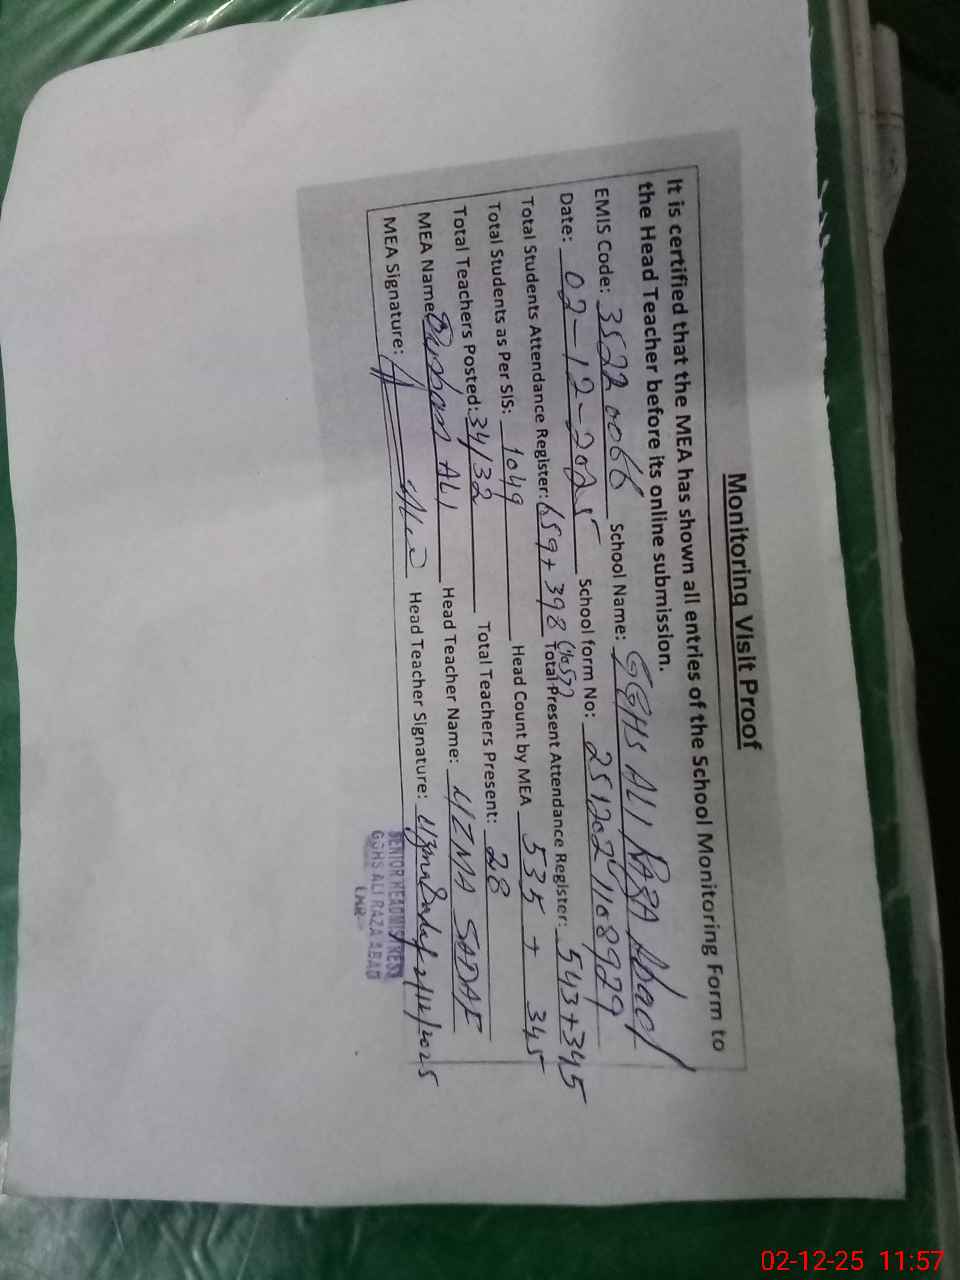 Monitoring Visit Proof
It is certified that the MEA has shown all entries of the School Monitoring Form to
the Head Teacher before its online submission.
EMIS Code: 35220066 School Name: GGHS ALI RAZA Abad
Date: 02-12-2025 School form No: 2512021108929
Total Students Attendance Register: 659+398 (1057) Total Present Attendance Register: 543+345
Total Students as Per SIS: 1049 Head Count by MEA 535 + 345
Total Teachers Posted: 34/32 Total Teachers Present: 28
MEA Name ALI Head Teacher Name: UZMA SADAF
MEA Signature: Head Teacher Signature: Uzma Sadaf 2/12/2025
SENIOR HEADMISTRESS
GGHS ALI RAZA ABAD
LHR
02-12-25 11:57